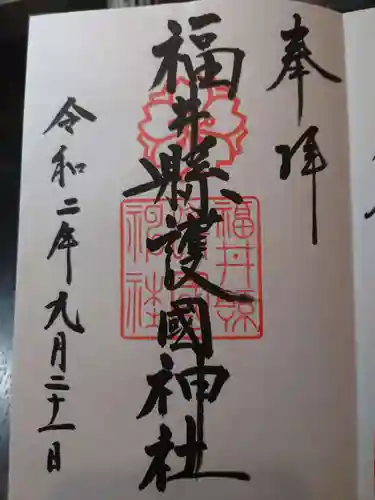 奉拝
福井縣護國神社
福井縣護國神社
令和二年九月二十一日